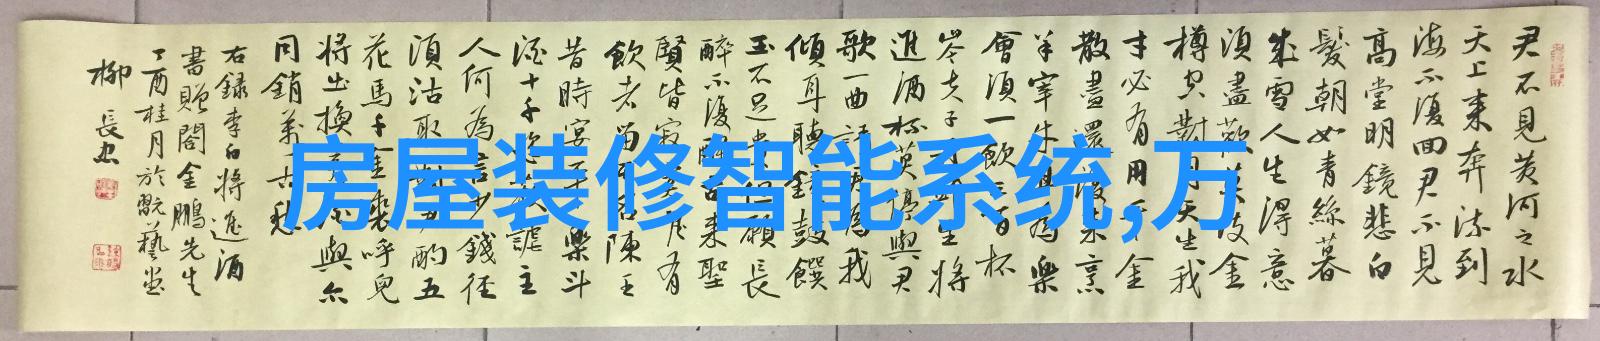 君不見黃河之水
天上来奔流到
海不復回君不見
高堂明鏡悲白
髮朝如青絲暮
成雪人生得意
須盡歡莫使金
樽空對月天生我
才必有用千金
散盡還復来烹
羊宰牛且為樂
會須一飲三百杯
岑夫子生將
進酒杯莫停與君
歌一曲請君為我
傾耳聽鐘鼓饌
玉不足貴但願長
醉不復醒古来聖
賢皆寂寞有
飲者留其名陳王
昔時宴平樂斗
酒十千謔主
人何為言少錢徑
須沽取對君酌五
花馬千金裘呼兒
将出換與尔
同銷萬古愁
右録李白將進酒
書贈閣金鵬先生
丁酉桂月於翫藝堂
柳長忠
房屋装修智能系统,万